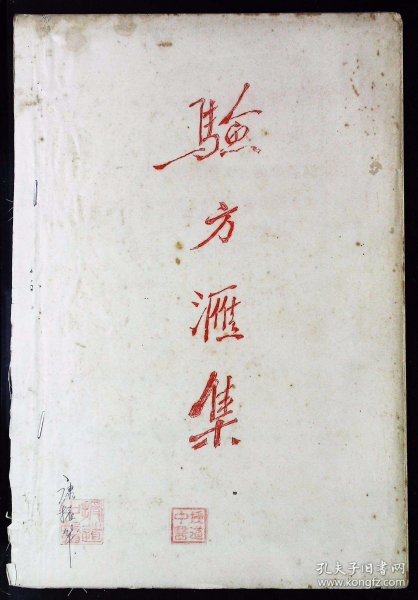 驗
方
匯
集
孔夫子旧书网
www.kongfz.com